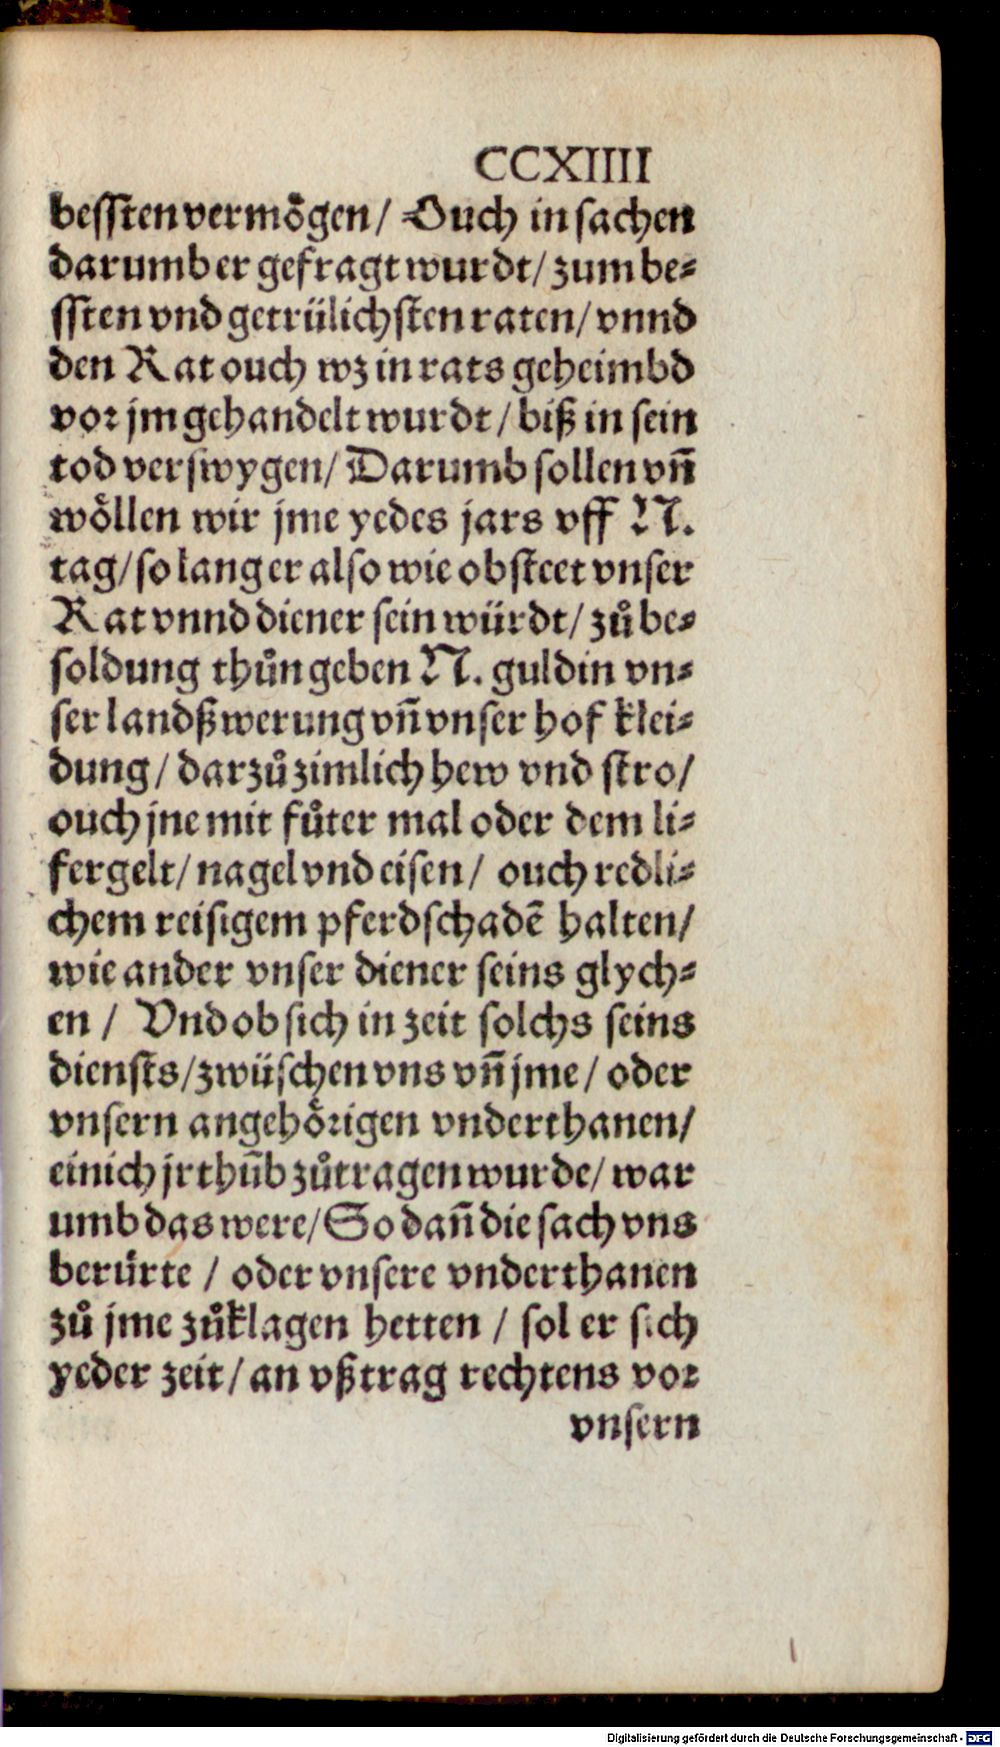 CCXIIII
beſſten vermoͤgen/ Ouch in ſachen
darumb er gefragt wurdt/ zum be⸗
ſſten vnd getrülichſten raten/ vnnd
den Rat ouch wz in rats geheimbd
vor jm gehandelt wurdt/ biß in ſein
tod verſwygen/ Darumb ſollen vn̄
woͤllen wir jme yedes jars vff N.
tag/ ſo lang er alſo wie obſteet vnſer
Rat vnnd diener ſein würdt/ zuͦ be⸗
ſoldung thuͦn geben N. guldin vn⸗
ſer landßwerung vn̄ vnſer hof klei⸗
dung/ darzuͦ zimlich hew vnd ſtro/
ouch jne mit fuͦter mal oder dem li⸗
fergelt/ nagel vnd eiſen/ ouch redli⸗
chem reiſigem pferdſchadē halten/
wie ander vnſer diener ſeins glych⸗
en / Vnd ob ſich in zeit ſolchs ſeins
dienſts/ zwüſchen vns vn̄ jme/ oder
vnſern angehoͤrigen vnderthanen/
einich jrthūb zuͦtragen wurde/ war
umb das were/ So dan̄ die ſach vns
beruͤrte / oder vnſere vnderthanen
zuͦ jme zuͦklagen hetten / ſol er ſich
yeder zeit/ an vßtrag rechtens vor
vnſern
Digitalisierung gefördert durch die Deutsche Forschungsgemeinschaft - DFG